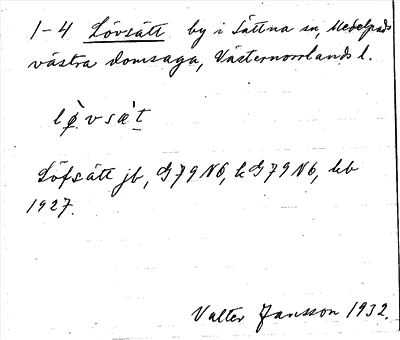 1-4 Lövsätt by i Sättna sn, Medelpads
västra domsaga, Västernorrlands l.
lø̀vsæ̀t
Löfsätt jb, G79N6, kG79N6, kb
1927.
Valter Jansson 1932.